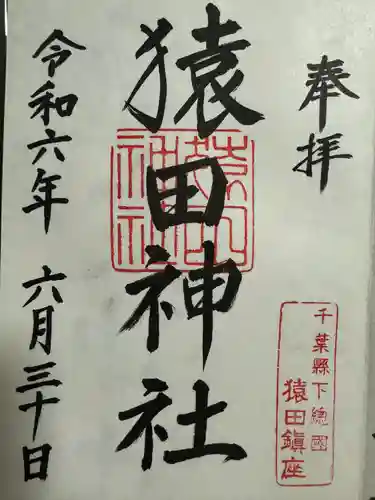 奉拝
千葉縣下總國
猿田鎮座
猿田神社
令和六年 六月三十日